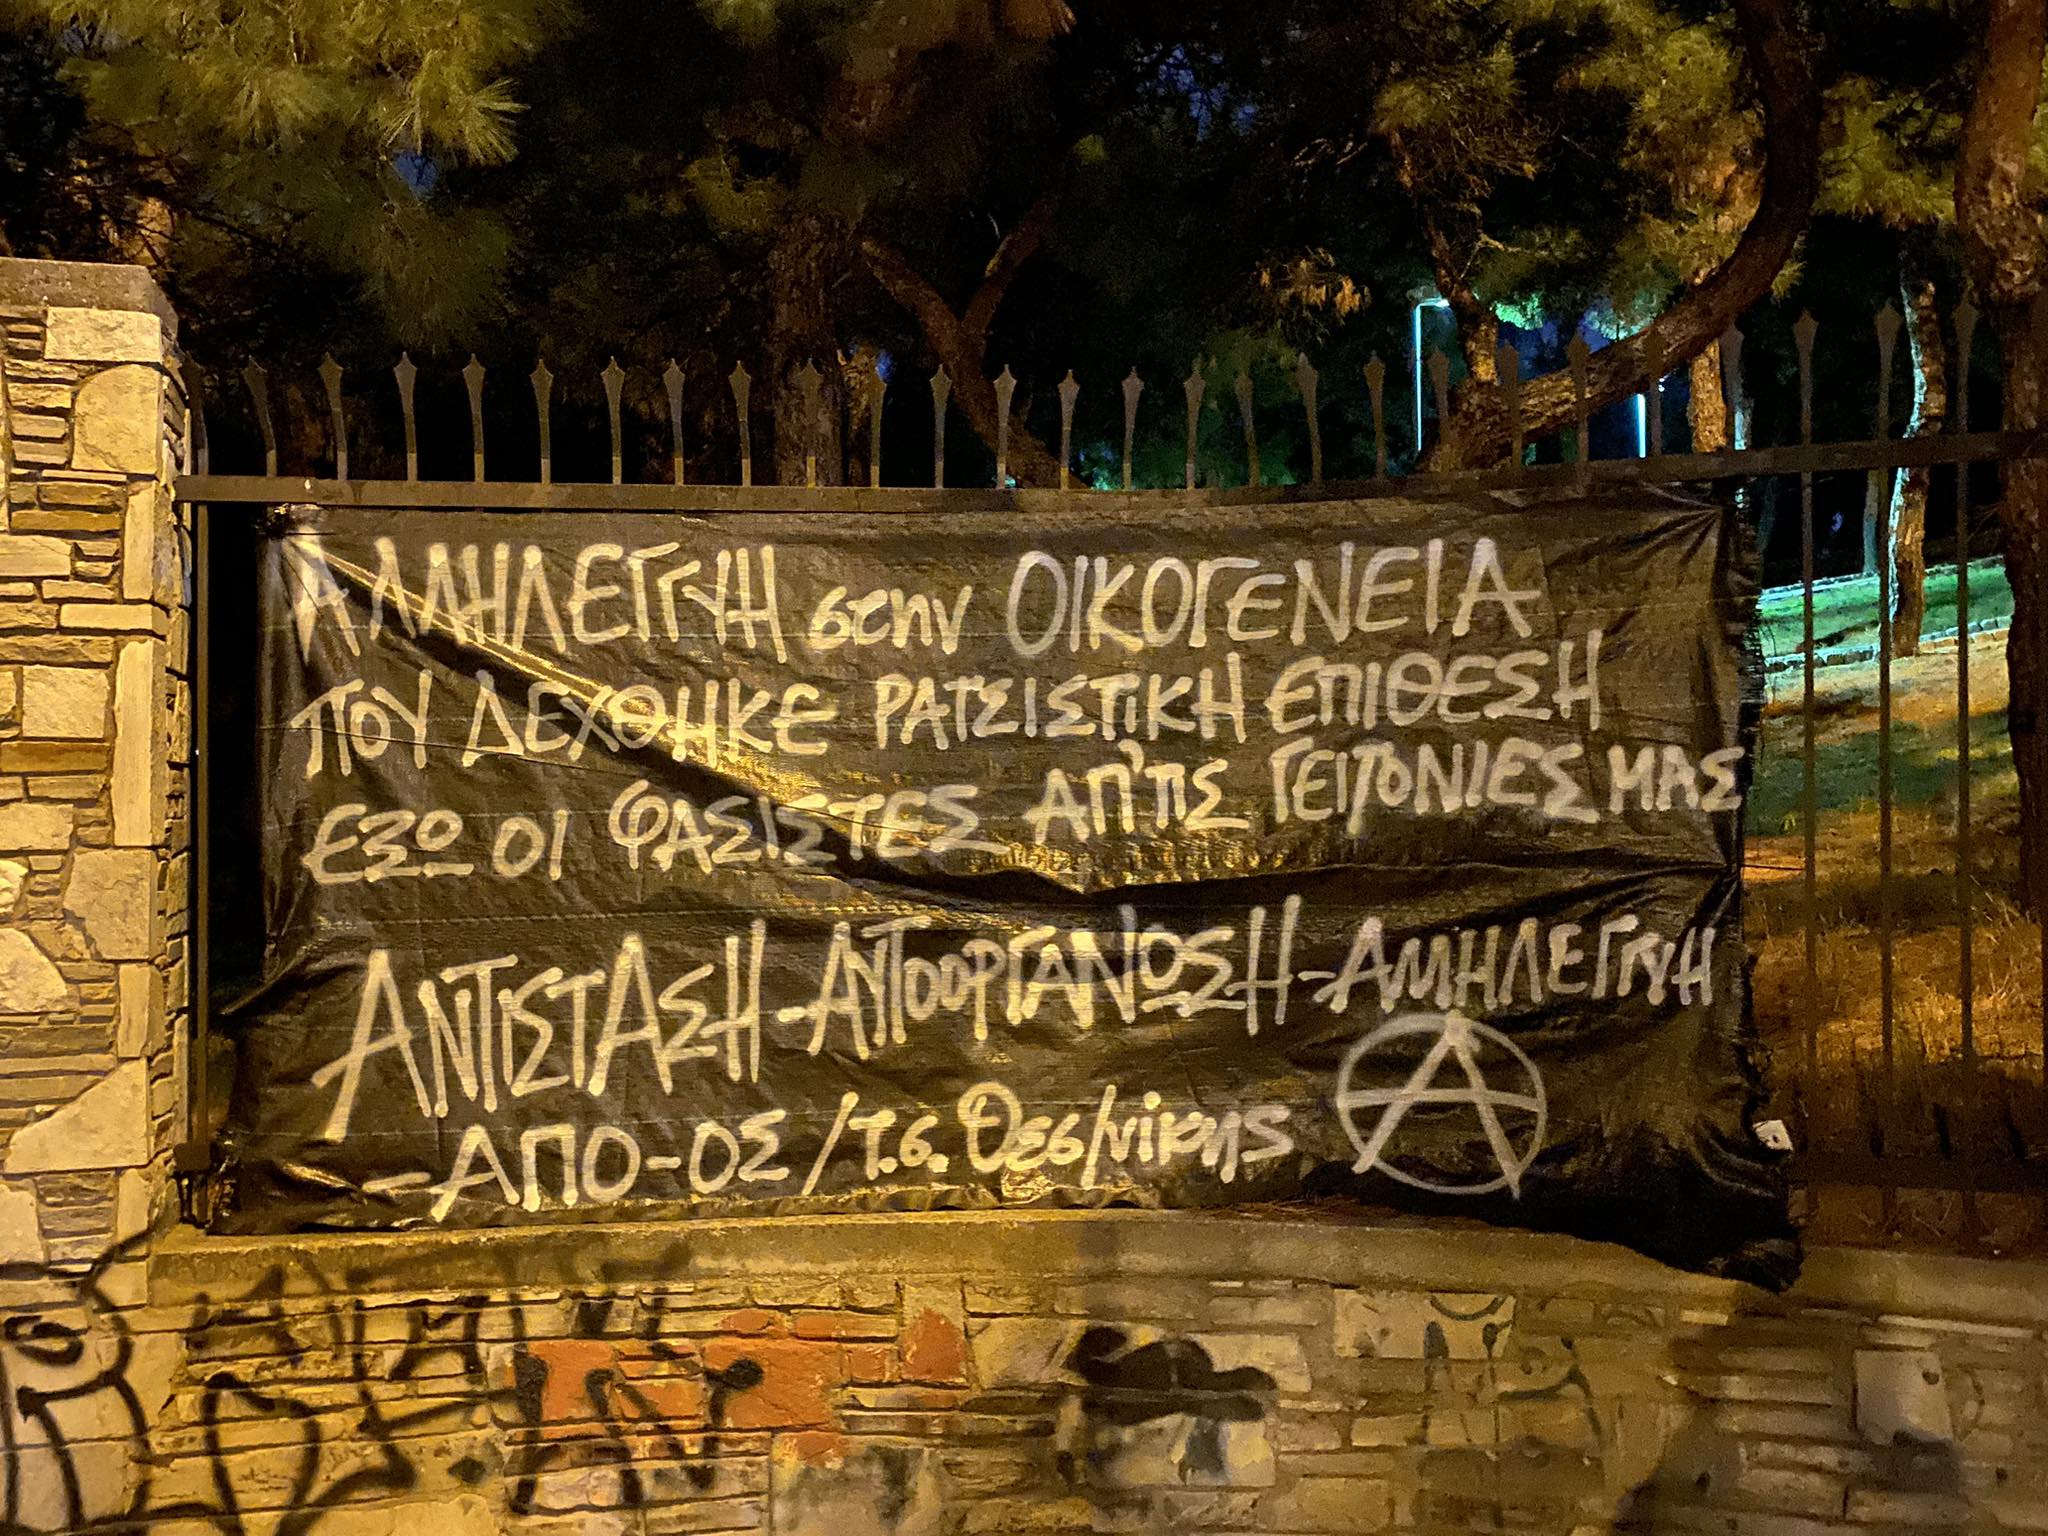 ΑΛΛΗΛΕΓΓΥΗ στην ΟΙΚΟΓΕΝΕΙΑ
ΠΟΥ ΔΕΧΘΗΚΕ ΡΑΤΣΙΣΤΙΚΗ ΕΠΙΘΕΣΗ
ΕΞΩ ΟΙ ΦΑΣΙΣΤΕΣ ΑΠ'ΤΙΣ ΓΕΙΤΟΝΙΕΣ ΜΑΣ
ΑΝΤΙΣΤΑΣΗ-ΑΥΤΟΟΡΓΑΝΩΣΗ-ΑΛΛΗΛΕΓΓΥΗ
-ΑΠΟ-ΟΣ/Τ.σ. Θεσ/νίκης Α